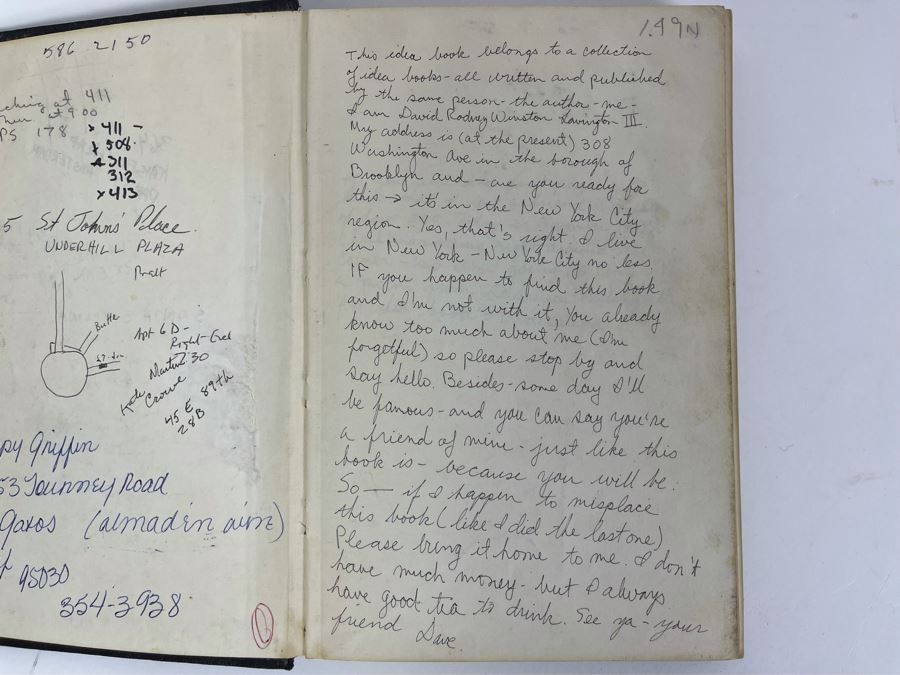 586 2150
ching at 411
at 9:00
PS 178
x 411 -
x 508
x 311
312
x 413
5 St John's Place.
UNDERHILL PLAZA
Pratt
Butler
Apt 6D -
Right-End
Martin: 30
Kate
Crowe
45 E 89th
28B
py Griffin
53 Tourney Road
Gatos (almaden aim)
95030
354-3938
1.49N
This idea book belongs to a collection
of idea books - all written and published
by the same person - the author - me -
I am David Rodney Winston Lavington III.
My address is (at the present) 308
Washington Ave in the borough of
Brooklyn and - are you ready for
this → it's in the New York City
region. Yes, that's right. I live
in New York - New York City no less.
If you happen to find this book
and I'm not with it, You already
know too much about me (I'm
forgetful) so please stop by and
say hello. Besides - some day I'll
be famous - and you can say you're
a friend of mine - just like this
book is - because you will be.
So — if I happen to misplace
this book (like I did the last one)
Please bring it home to me. I don't
have much money - but I always
have good tea to drink. See ya - your
friend Dave.